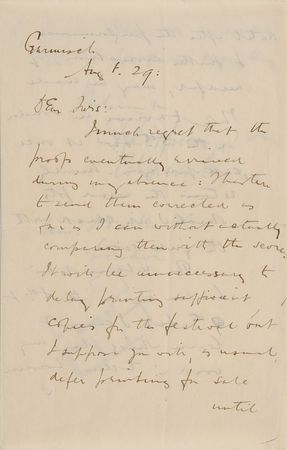 Garmisch
Aug 1. 29:
Dear Sirs:
I much regret that the
proofs eventually arrived
during my absence: I hasten
to send them corrected as
far as I can without actually
comparing them with the score.
It will be unnecessary to
delay printing sufficient
copies for the festival but
I suppose you will, as usual,
defer printing for sale
until